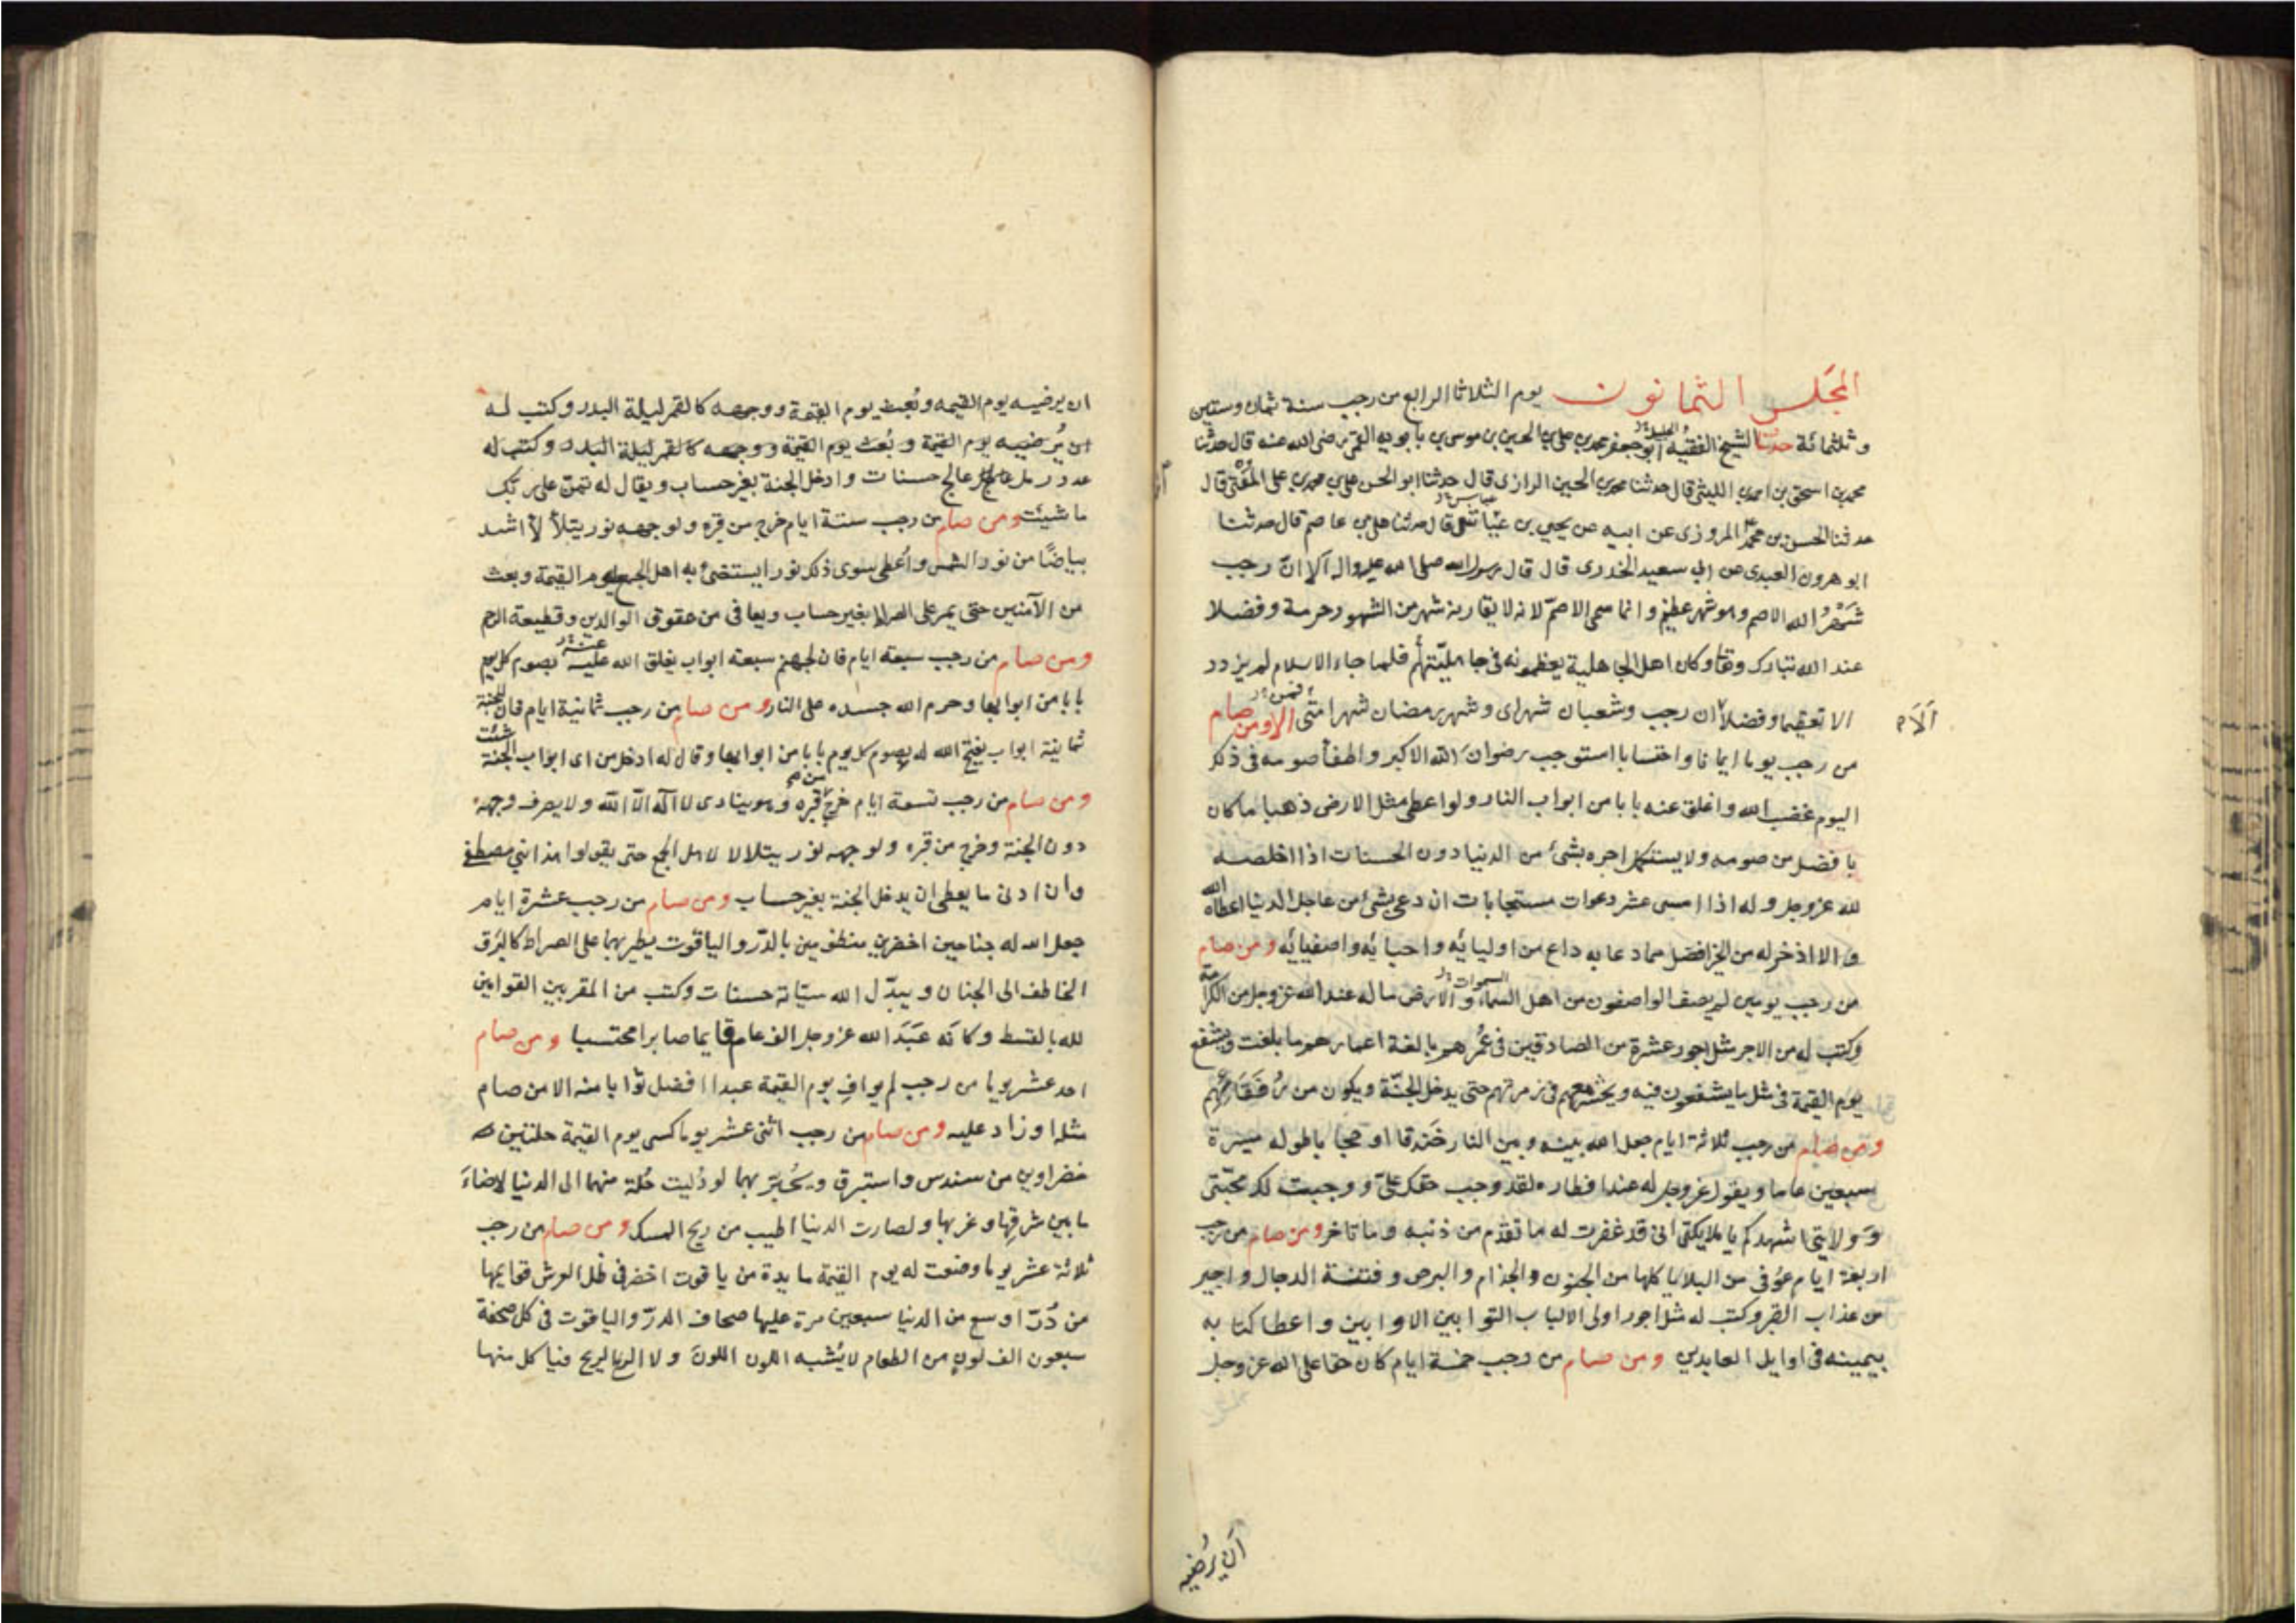 المجلس الثمانون يوم الثلاثا الرابع من رجب سنة ثمان وستين
وثلثمائة حدثنا الشيخ الفقيه الجليل ابو جعفر محمد بن علي بن الحسين بن موسى بن بابويه القمي رضى الله عنه قال حدثنا
محمد بن اسحق بن احمد الليثى قال حدثنا محمد بن الحسين الرازى قال حدثنا ابو الحسن علي بن محمد بن على المفتى قال
حدثنا الحسن بن محمد المروزى عن ابيه عن يحيى بن عياش قال حدثنا على بن عاصم قال حدثنا
ابو هرون العبدى عن ابي سعيد الخدرى قال قال رسول الله صلى الله عليه واله آلا انّ رجب
شَهْرُ الله الاصم وهو شهر عظيم وانما سمى الاصمّ لانه لا يقاربه شهر من الشهور حرمة وفضلا
عند الله تبارك وتعا وكان اهل الجاهلية يعظمونه فى جاهليّتهم فلما جاء الاسلام لم يزدد
الا تعظيما وفضلا ان رجب وشعبان شهراى وشهر رمضان شهر امتى الا ومن صام
آلآم
فمن
من رجب يوما ايمانا واحتسابا استوجب رضوان الله الاكبر واطفأ صومه فى ذلك
اليوم غضب الله واغلق عنه بابا من ابواب النار ولو اعطى مثل الارض ذهبا ما كان
بافضل من صومه ولا يستكمل اجره بشئ من الدنيا دون الحسنات اذا اخلصه
لله عزوجل وله اذا امسى عشر دعوات مستجابات ان دعى بشئ من عاجل الدنيا اعطاه الله
والا اذخر له من الخير افضل مما دعا به داع من اوليائه واحبائه واصفيائه ومن صام
من رجب يومين لم يصف الواصفون من اهل السماء والارض ماله عند الله عزوجل من الكرامة
السموات
وكتب له من الاجر مثل اجور عشرة من الصادقين فى عُمُرهم بالغة اعمارهم ما بلغت ويشفع
يوم القيمة فى مثل ما يشفعون فيه ويحشره معهم فى زمرتهم حتى يدخل الجنّة ويكون من رُفَقَائهم
ومن صام من رجب ثلاثة ايام جعل الله بينه وبين النار خَندقا او حجابا طوله ميسرة
سبعين عاما ويقول عزوجل له عند افطاره لقد وجب حقك علىّ ووجبت لك محبّتى
وَوَلايتى اشهدكم يا ملايكتى انى قد غفرت له ما تقدم من ذنبه وما تاخر ومن صام من رجب
اربعة ايام عوُفى من البلايا كلها من الجنون والجذام والبرص وفتنة الدجال واجير
من عذاب القبر وكتب له مثل اجور اولى الالباب التوابين الاوابين واعطى كتابه
بيمينه فى اوايل العابدين ومن صام من رجب خمسة ايام كان حقا على الله عزوجل
اَن يُرضيه
ان يرضيه يوم القيمه وبُعث يوم القيمة ووجهه كالقمر ليلة البدر وكتب له
ان يُرضييه يوم القيمة وبُعث يوم القيمة ووجهه كالقمر ليلة البدر وكتب له
عدد رمل عالج حسنات وادخل الجنة بغير حساب ويقال له تمنّ على ربك
ما شيئت ومن صام من رجب ستة ايام خرج من قبره ولوجهه نور يتلألأ اشد
بياضًا من نور الشمس واُعطى سوى ذلك نورا يستضئ به اهل الجمع يوم القيمة وبعث
من الآمنين حتى يمر على الصراط بغير حساب ويعافى من عقوق الوالدين وقطيعة الرحم
ومن صام من رجب سبعة ايام فان لجهنم سبعة ابواب يغلق الله عليه بصوم كل يوم
عنه
بابا من ابوابها وحرم الله جسده على النار ومن صام من رجب ثمانية ايام فان للجنة
ثمانية ابواب يفتح الله له بصوم كل يوم بابا من ابوابها وقال له ادخل من اى ابواب الجنة شئت
ومن صام من رجب تسعة ايام خرج من قبره وهو ينادى لا اله الّا الله ولا يصرف وجهه
دون الجنة وخرج من قبره ولوجهه نور يتلالا لاهل الجمع حتى يقولوا هذا نبي مصطفى
وان ادنى ما يعطى ان يدخل الجنة بغير حساب ومن صام من رجب عشرة ايام
جعل الله له جناحين اخضرين منظومين بالدّر والياقوت يطير بهما على الصراط كالبَرق
الخاطف الى الجنان ويبدّل الله سيّاته حسنات وكتب من المقربين القوامين
لله بالقسط وكانه عَبَدَ الله عزوجل الف عام قايما صابرا محتسبا ومن صام
احد عشر يوما من رجب لم يوافِ يوم القيمة عبدا افضل ثوابا منه الا من صام
مثله او زاد عليه ومن صام من رجب اثنى عشر يوما كسى يوم القيمة حلتين
خضراوين من سندس واستبرق ويُحَبّرَ بهما لو دُليت حُلة منهما الى الدنيا لاضاءَ
ما بين شرقها وغربها ولصارت الدنيا اطيب من ريح المسك ومن صام من رجب
ثلاثة عشر يوما وضعت له يوم القيمة مايدة من ياقوت اخضر فى ظل العرش قوايمها
من دُرّ اوسع من الدنيا سبعين مرة عليها صحاف الدرّ والياقوت فى كل صحفة
سبعون الف لون من الطعام لا يُشبه اللون اللونَ ولا الريح الريح فياكل منها